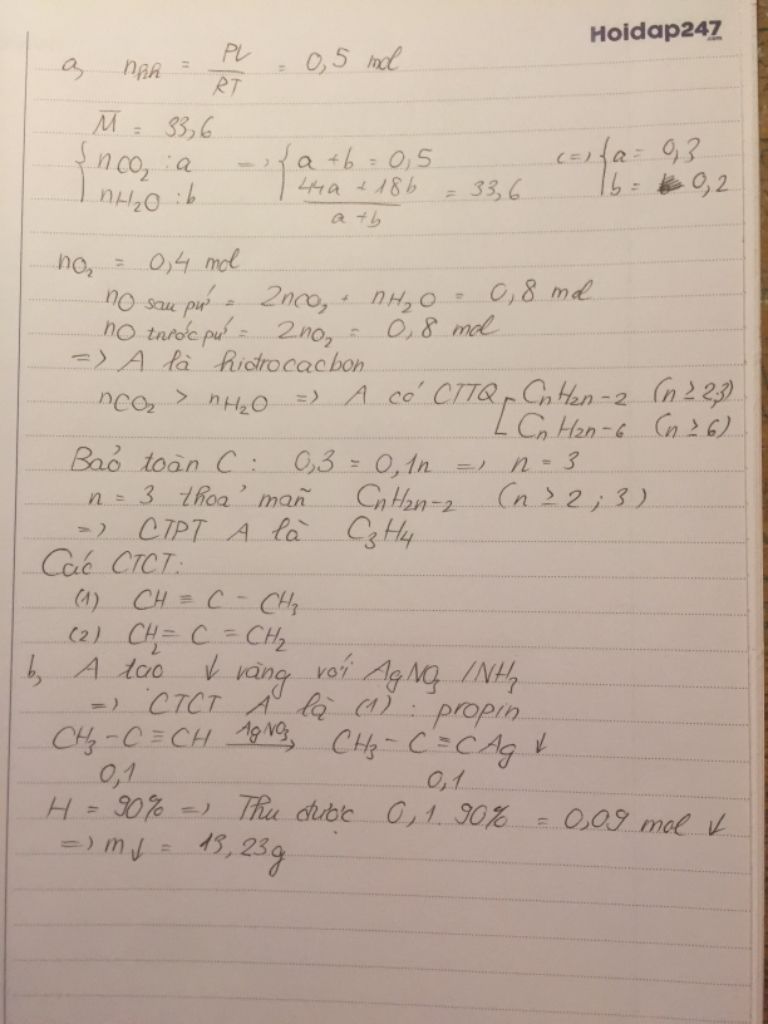 Hoidap247.com
a, nhh = PV/RT = 0,5 mol
M̅ = 33,6
{nCO₂ : a => {a + b = 0,5 <=> {a = 0,3
nH₂O : b (44a + 18b)/(a + b) = 33,6 b = 0,2
nO₂ = 0,4 mol
nO sau pứ = 2nCO₂ + nH₂O = 0,8 mol
nO trước pứ = 2nO₂ = 0,8 mol
=> A là hidrocacbon
nCO₂ > nH₂O => A có CTTQ [CnH2n-2 (n ≥ 2,3)
CnH2n-6 (n ≥ 6)
Bảo toàn C : 0,3 = 0,1n => n = 3
n = 3 thoả mãn CnH2n-2 (n ≥ 2 ; 3)
=> CTPT A là C₃H₄
Các CTCT:
(1) CH ≡ C - CH₃
(2) CH₂ = C = CH₂
b, A tạo ↓ vàng với AgNO₃ /NH₃
=> CTCT A là (1) : propin
CH₃ - C ≡ CH —AgNO₃→ CH₃ - C ≡ CAg ↓
0,1 0,1
H = 90% => Thu được 0,1. 90% = 0,09 mol ↓
=> m↓ = 13,23g